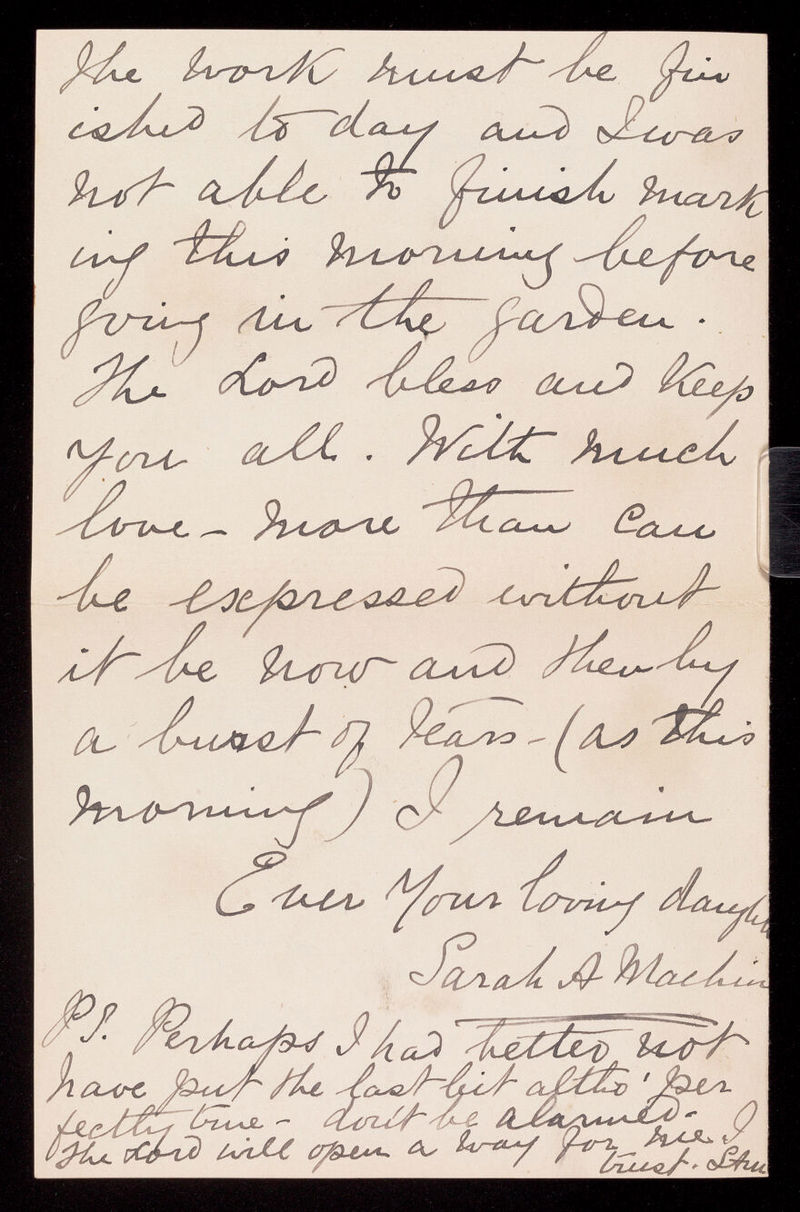 The work must be fin
ished to day and I was
not able to finish mark
ing this morning before
going in the garden.
The Lord bless and keep
you all. With much
love - more than can
be expressed without
it be now and then by
a burst of tears - (as this
morning) I remain
Ever Your loving daugh
Sarah A Machin
P.S. Perhaps I had better not
have put the last bit altho' per
fectly true - don't be alarmed -
The Lord will open a way for me I
trust. SAM